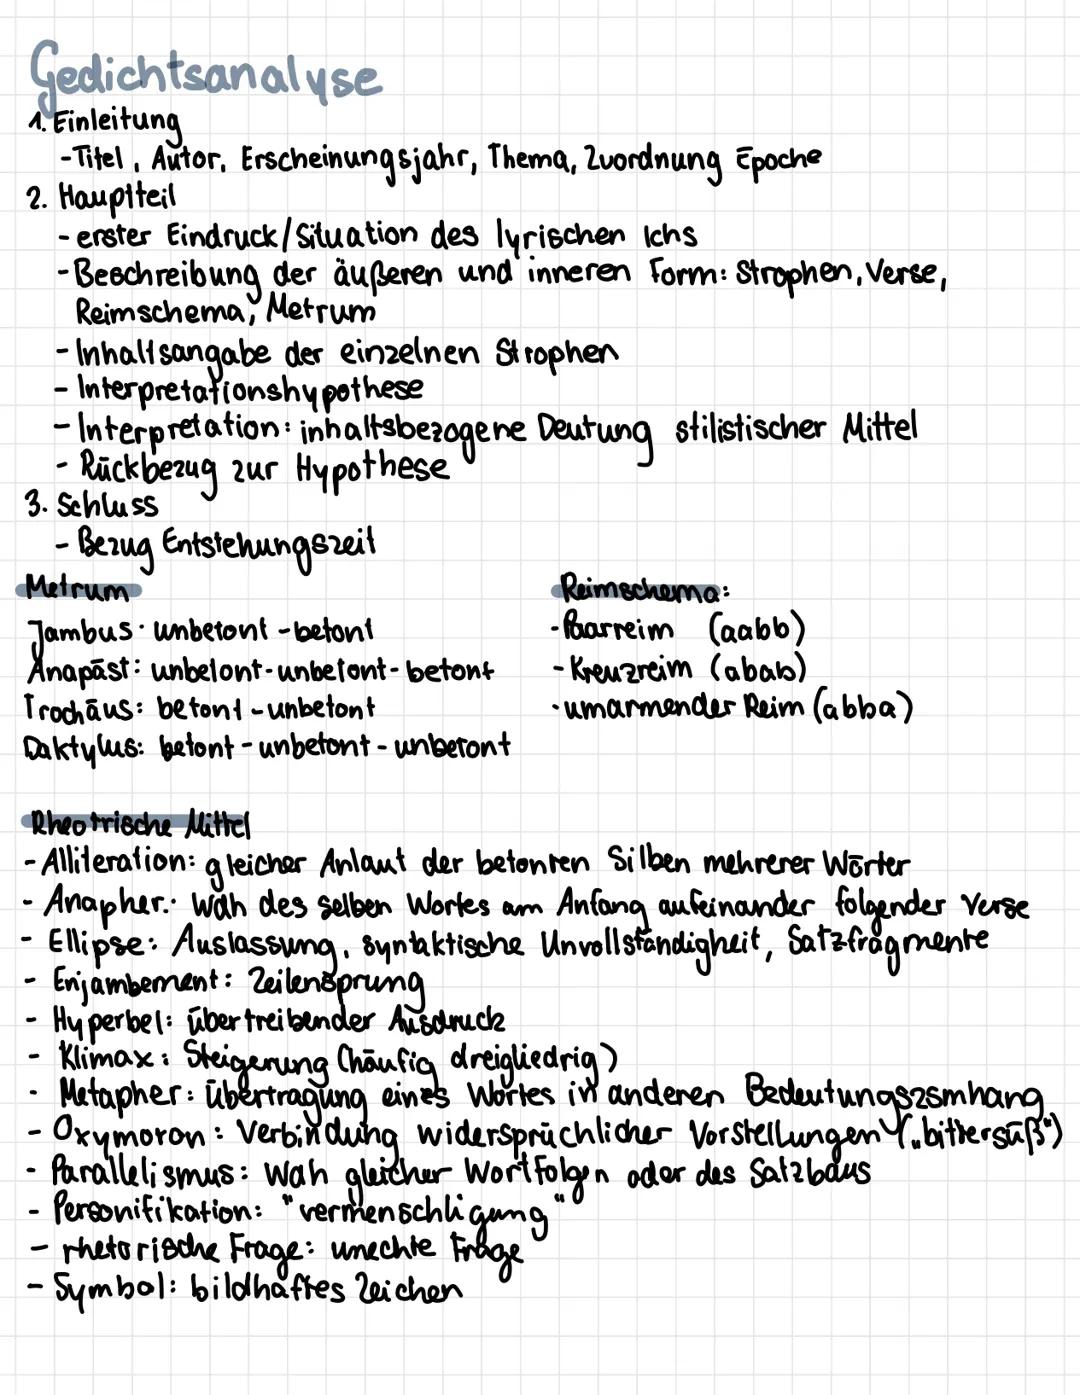 Gedichtsanalyse
1. Einleitung
- Titel, Autor, Erscheinungsjahr, Thema, Zuordnung Epoche
2. Hauptteil
- erster Eindruck/Situation des lyrischen Ichs
- Beschreibung der äußeren und inneren Form: Strophen, Verse,
Reimschema, Metrum
- Inhaltsangabe der einzelnen Strophen
- Interpretationshypothese
- Interpretation: inhaltsbezogene Deutung stilistischer Mittel
- Rückbezug zur Hypothese
3. Schluss
- Bezug Entstehungszeit
Metrum
Jambus: unbetont - betont
Anapäst: unbetont - unbetont - betont
Trochäus: betont - unbetont
Daktylus: betont - unbetont - unbetont
Reimschema:
- Paarreim (aabb)
- Kreuzreim (abab)
- umarmender Reim (abba)
Rheotrische Mittel
- Alliteration: gleicher Anlaut der betonten Silben mehrerer Wörter
- Anapher: Wdh des selben Wortes am Anfang aufeinander folgender Verse
- Ellipse: Auslassung, syntaktische Unvollständigheit, Satzfragmente
- Enjambement: Zeilensprung
- Hyperbel: übertreibender Ausdruck
- Klimax: Steigerung (häufig dreigliedrig)
- Metapher: Übertragung eines Wortes in anderen Bedeutungszsmhang
- Oxymoron: Verbindung widersprüchlicher Vorstellungen („bittersüß")
- Parallelismus: Wdh gleicher Wortfolgen oder des Satzbaus
- Personifikation: "vermenschligung"
- rhetorische Frage: unechte Frage
- Symbol: bildhaftes Zeichen